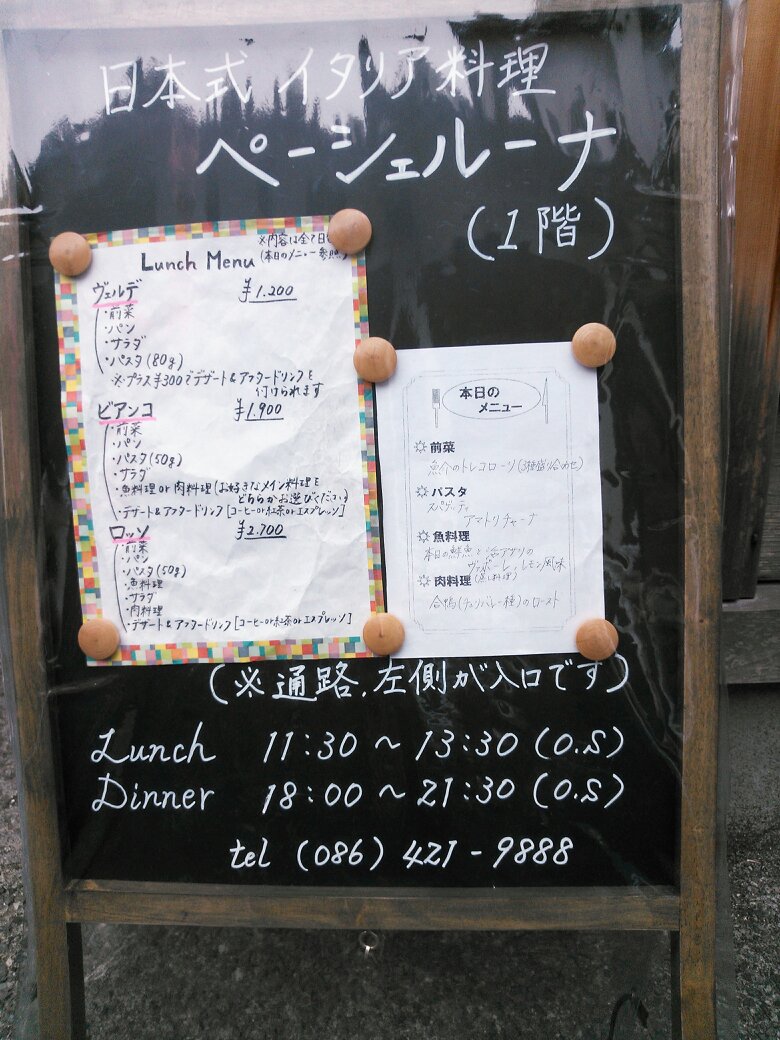 日本式 イタリア料理
ペーシェルーナ
(1階)
※内容は全て日
(本日のメニュー参照)
Lunch Menu
ヴェルデ ¥1.200
・前菜
・パン
・サラダ
・パスタ(80g)
※プラス¥300でデザート&アフタードリンクを
付けられます
ビアンコ ¥1.900
・前菜
・パン
・パスタ(50g)
・サラダ
・魚料理or肉料理(お好きなメイン料理を
どちらかお選びください)
・デザート&アフタードリンク[コーヒーor紅茶orエスプレッソ]
ロッソ ¥2.700
・前菜
・パン
・パスタ(50g)
・魚料理
・サラダ
・肉料理
・デザート&アフタードリンク[コーヒーor紅茶orエスプレッソ]
本日の
メニュー
前菜
魚介のトレコローリ(3種盛り合わせ)
パスタ
スパゲッティ
アマトリチャーナ
魚料理
本日の鮮魚と活アサリの
ヴァポーレ、レモン風味
(蒸し料理)
肉料理
合鴨(チェリバレー種)のロースト
(※通路、左側が入口です)
Lunch 11:30 ~ 13:30 (O.S)
Dinner 18:00 ~ 21:30 (O.S)
tel (086) 421-9888